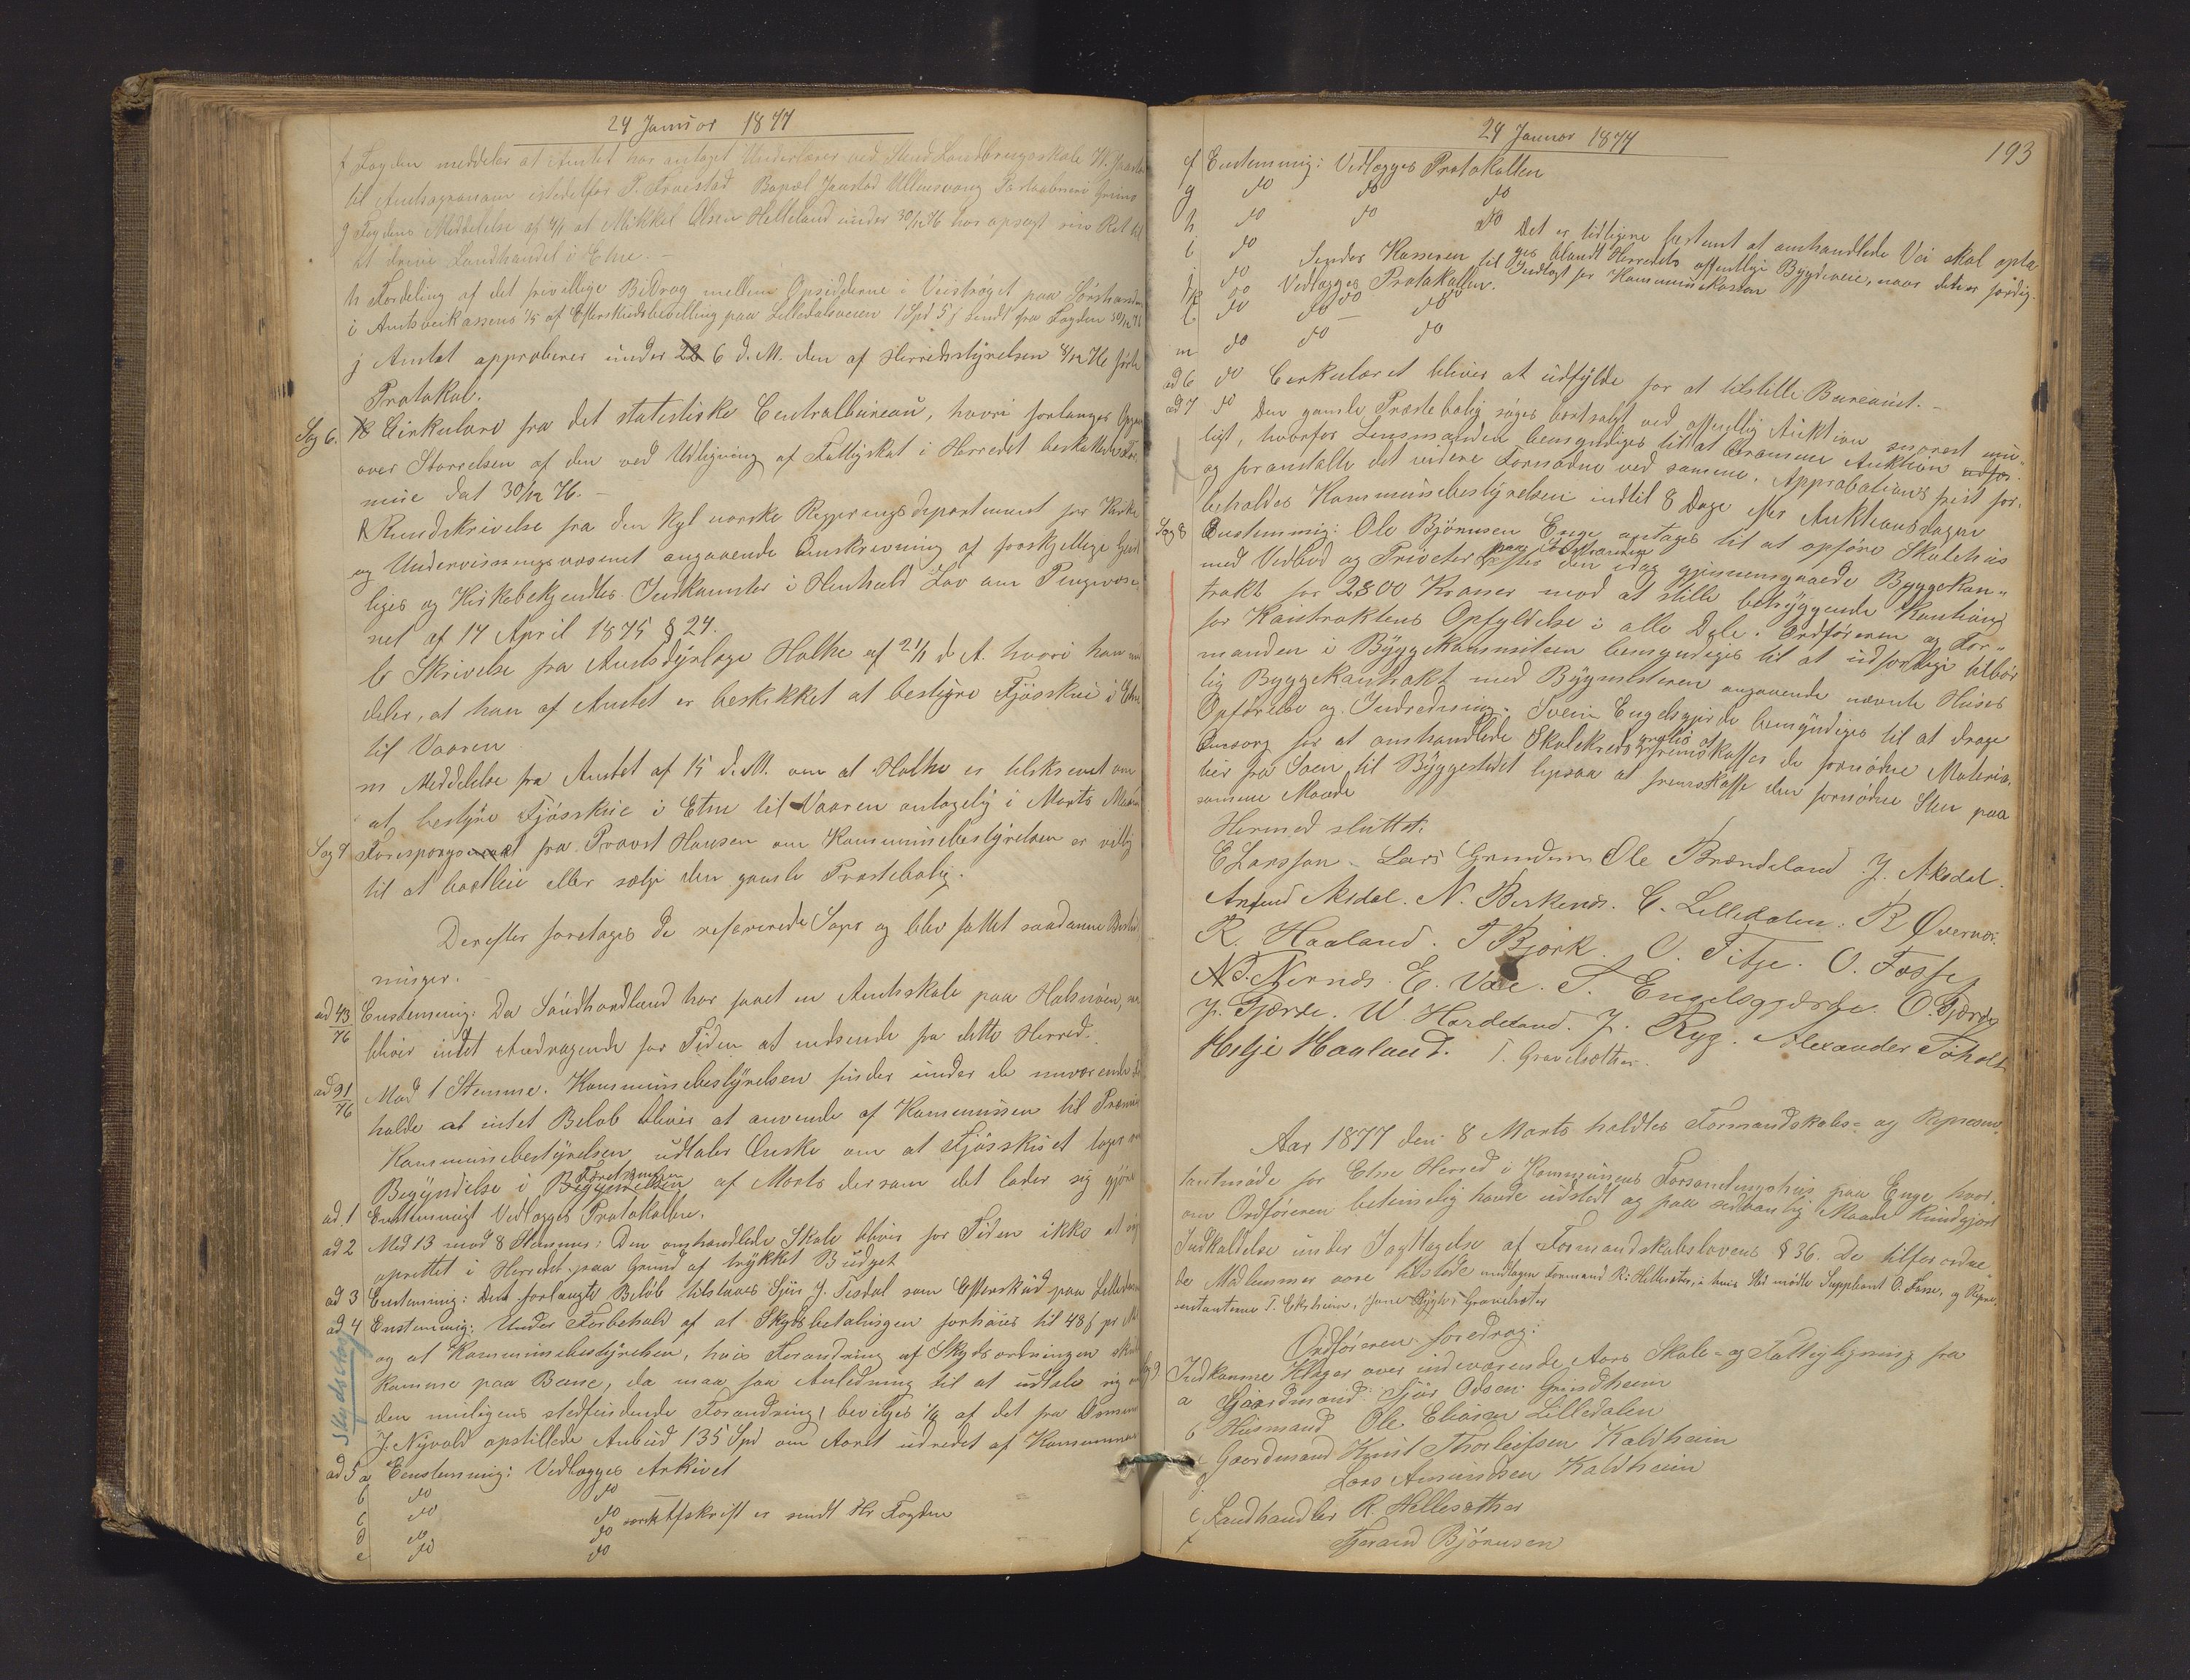 24 Januar 1877
f Fogden meddeler at Amtet har antaget Underlærer ved Stend Landbrugsskole W.
til Amtsagronom istedetfor P. Froestad Bopæl Jaastad Ullensvang Postaabneri Grimo
g Fogdens Meddelelse af 4/1 at Mikkel Olsen Helleland under 30/12 76 har opsagt sin Ret til
at drive Landhandel i Etne. –
h Fordeling af det frivillige Bidrag mellem Opsidderne i Veistrøget paa Sørstranden
i Amtsveikassens 1/5 af Efterskudsbevilling paa Lilledalsveien 1 Spd 5 s sendt fra Fogden 30/12 76
j Amtet approberer under 22 6 d. M. den af Herredsstyrelsen 8/12 76 førte
Protokol.
Sag 6. k Cirkulære fra det statistiske Centralbureau, hvori forlanges Opgave
over Størrelsen af den ved Udligning af Fattigskat i Herredet beskattede For-
mue dat 30/12 76. –
k Rundskrivelse fra den Kgl norske Regjeringsdepartement for Kirke
og Undervisningsvæsenet angaaende Omskrivning af forskjellige Geist
liges og Kirkebetjentes Indkomster i Henhold Lov om Pengevæse-
net af 17 April 1875 § 24.
l Skrivelse fra Amtsdyrlæge Holthe af 2/1 d. A. hvori han med
deler, at han af Amtet er beskikket at bestyre Fjøsskue i Etne
til Vaaren
m Meddelelse fra Amtet af 15 d. M. om at Holthe er tilskrevet om
at bestyre Fjøsskue i Etne til Vaaren antagelig i Marts Maaned
Sag 7 Forespørgsmaal fra Provst Hansen om Kommunebestyrelsen er villig
til at bortleie eller sælge den gamle Præstebolig.
Derefter foretoges de refererede Sager og blev fattet saadanne Beslut,
ninger.
ad 43/76 Enstemmig: Da Søndhordland har faaet en Amtsskole paa Halsnøen,
bliver intet Andragende for Tiden at indsende fra dette Herred.
ad 91/76 Mod 1 Stemme. Kommunebestyrelsen finder under de nuværende For
holde at intet Beløb bliver at anvende af Kommunen til Præmier
Kommunebestyrelsen udtaler Ønske om at Fjøsskuet tages sin
Begyndelse i Begyndelsen af Marts dersom det lader sig gjøre
ad 1 Enstemmigt Vedlægges Protokollen.
ad 2 Med 13 mod 8 Stemmer: Den omhandlede Skole bliver for Tiden ikke at
oprettet i Herredet paa Grund af trykket Budget
ad 3 Enstemmig: Det forlangte Beløb tilstaaes Sjur J. Tesdal som Efterskud paa Lilledal
ad 4 Enstemmig: Under Forbehold af at Skydsbetalingen forhøies til 48 s pr Mil
og at Kommunebestyrelsen, hvis Forandring af Skydsordningen skulde
komme paa Bane, da maa faa Anledning til at udtale sig om
den muligens stedfindende Forandring, bevilges 1/4 af det fra Omund
J. Nyvold opstillede Anbud 135 Spd om Aaret udredet af Kommunen
Skydsstof
ad 5 a Eenstemmig: Vedlægges Arkivet
b do do
c do do Afskrift er sendt Hr Fogden
d do do
e do do
24 Januar 1877
193
f Enstemmig: Vedlægges Protokollen
g do do do
h do do do
i do Det er tidligere bestemt at omhandlede Vei skal opta
ges blandt Herredets offentlige Bygdeveie, naar den er færdig.
j do Sendes Kassereren til Indtægt for Kommunekassen
k do Vedlægges Protokollen.
l do do do
m do do do
ad 6 do Cirkulæret bliver at udfylde for at tilstille Bureauet. –
ad 7 do Den gamle Præstebolig søges bortsolgt ved offentlig Auktion snarest mu-
ligt, hvorfor Lensmanden bemyndiges til at beramme Auktion udfor
og foranstalte det videre Fornødne ved samme. Approbations frist for,
beholdes Kommunebestyrelsen indtil 8 Dage efter Auktionsdagen
Sag 8 Enstemmig: Ole Bjørnsen Enge antages til at opføre Skolehus
paa Sørstranden
med Vedbod og Priveter efter den idag gjennemgaaede Byggekon-
trakt for 2800 Kroner mod at stille betryggende Kaution
for Kontraktens Opfyldelse i alle Dele. Ordføreren og For-
manden i Byggekommiteen bemyndiges til at udfærdige tilbør
lig Byggekontrakt med Bygmesteren angaaende nævnte Huses
Opførelse og Indredning. Svein Engelsgjerde bemyndiges til at drage
Omsorg for at omhandlede Skolekreds gratis fremskaffer de fornødne Materia-
lier fra Søen til Byggestedet ligesaa at fremskaffe den fornødne Sten paa
samme Maade
Hermed sluttet.
E Larsson – Lars Grindem Ole Brændeland J. Aksdal.
Anfind Aksdal. N. Birkenæs. E. Lilledalen. R Øvernæs.
R. Haaland. T Bjørk. O. Fitje. O. Fosse
N T. Nernæs. E. Vae. S. Engelsgjerde. O. Gjærde
J. Gjærde. W. Hardeland. J. Ryg. Alexander Tøholt
Helje Haaland. T. Gravelsæther.
Aar 1877 den 8 Marts holdtes Formandskabs- og Repræsen-
tantmøde for Etne Herred i Kommunens Forsamlingshus paa Enge, hvor,
om Ordføreren betimelig havde udstedt og paa sedvanlig Maade kundgjort
Indkaldelse under Iagttagelse af Formandskabslovens § 36. De tilforordne
de Medlemmer vare tilstede undtagen Formand R. Hellesæter, i hvis Sted mødte Suppleant O. Fosse, og Repræ,
sentanterne T. Eksheim, Jone Rygh, Gravelsæter
Ordføreren foredrog:
Sag 9 Indkomne Klager over indeværende Aars Skole- og Fattigligning fra
a Gaardmand: Sjur Odsen Grindheim
b Husmand Ole Eliasen Lilledalen
c Gaardmand Knut Thorleifsen Kaldheim
d Lars Amundsen Kaldheim
e Landhandler R. Hellesæther
f Tjerand Bjørnsen